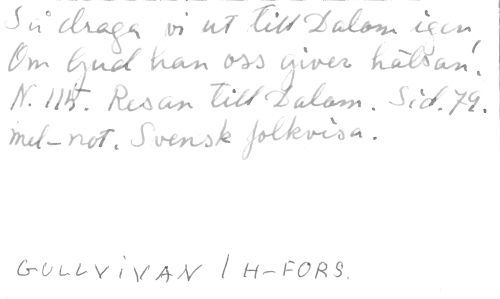 Så draga vi ut till Dalom igen,
Om Gud han oss giver hälsan!
N. 115. Resan till Dalom. Sid. 79.
mel-not. Svensk folkvisa.
GULLVIVAN / H-FORS.